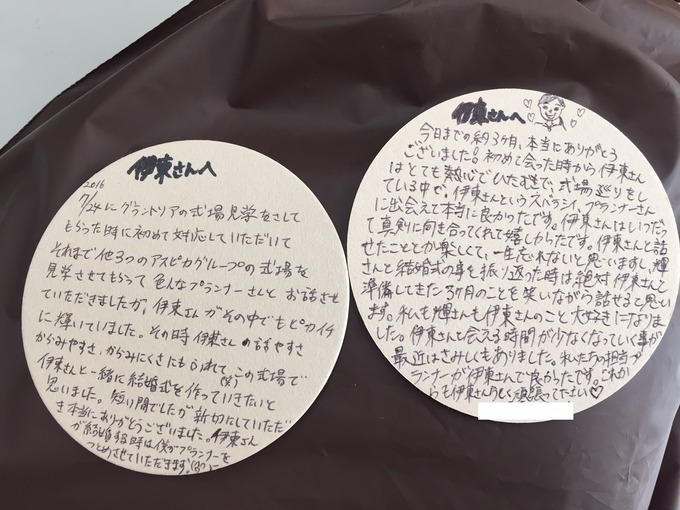 伊東さんへ
2016
7/24にグラントリアの式場見学をさして
もらった時に初めて対応していただいて
それまで他3つのアスピカグループの式場を
見学させてもらって色んなプランナーさんとお話させ
ていただきましたが、伊東さんがその中でもピカイチ
に輝いていました。その時伊東さんの話やすさ
からみやすさ、からみにくさにもひられて(笑)この式場で
伊東さんと一緒に結婚式を作っていきたいと
思いました。短い間でしたが親切にしていただ
き本当にありがとうございました。伊東さん
が結婚する時は僕がプランナーを
つとめさせていただきます。
伊東さんへ
今日までの約3ヶ月、本当にありがとう
ございました!初めて会った時から伊東さん
はとても熱心でいた
ている中で、伊東さんというスバラシイプランナーさん
に出会えて本当に良かったです。伊東さんはいつだっ
て真剣に向き合ってくれて嬉しかったです。伊東さんと話
せたこととか楽しくて、一生忘れないと思いますし、輝
さんと結婚式の事を振り返った時は絶対伊東さんと
準備してきた3ヶ月のことを笑いながら話せると思い
ます。私も輝さんも伊東さんのこと大好きになりま
した。伊東さんと会える時間が少なくなっていく事が
最近はさみしくもありました。私たちの担当プ
ランナーが伊東さんで良かったです。これか
らも伊東さんらしく頑張って下さい♡